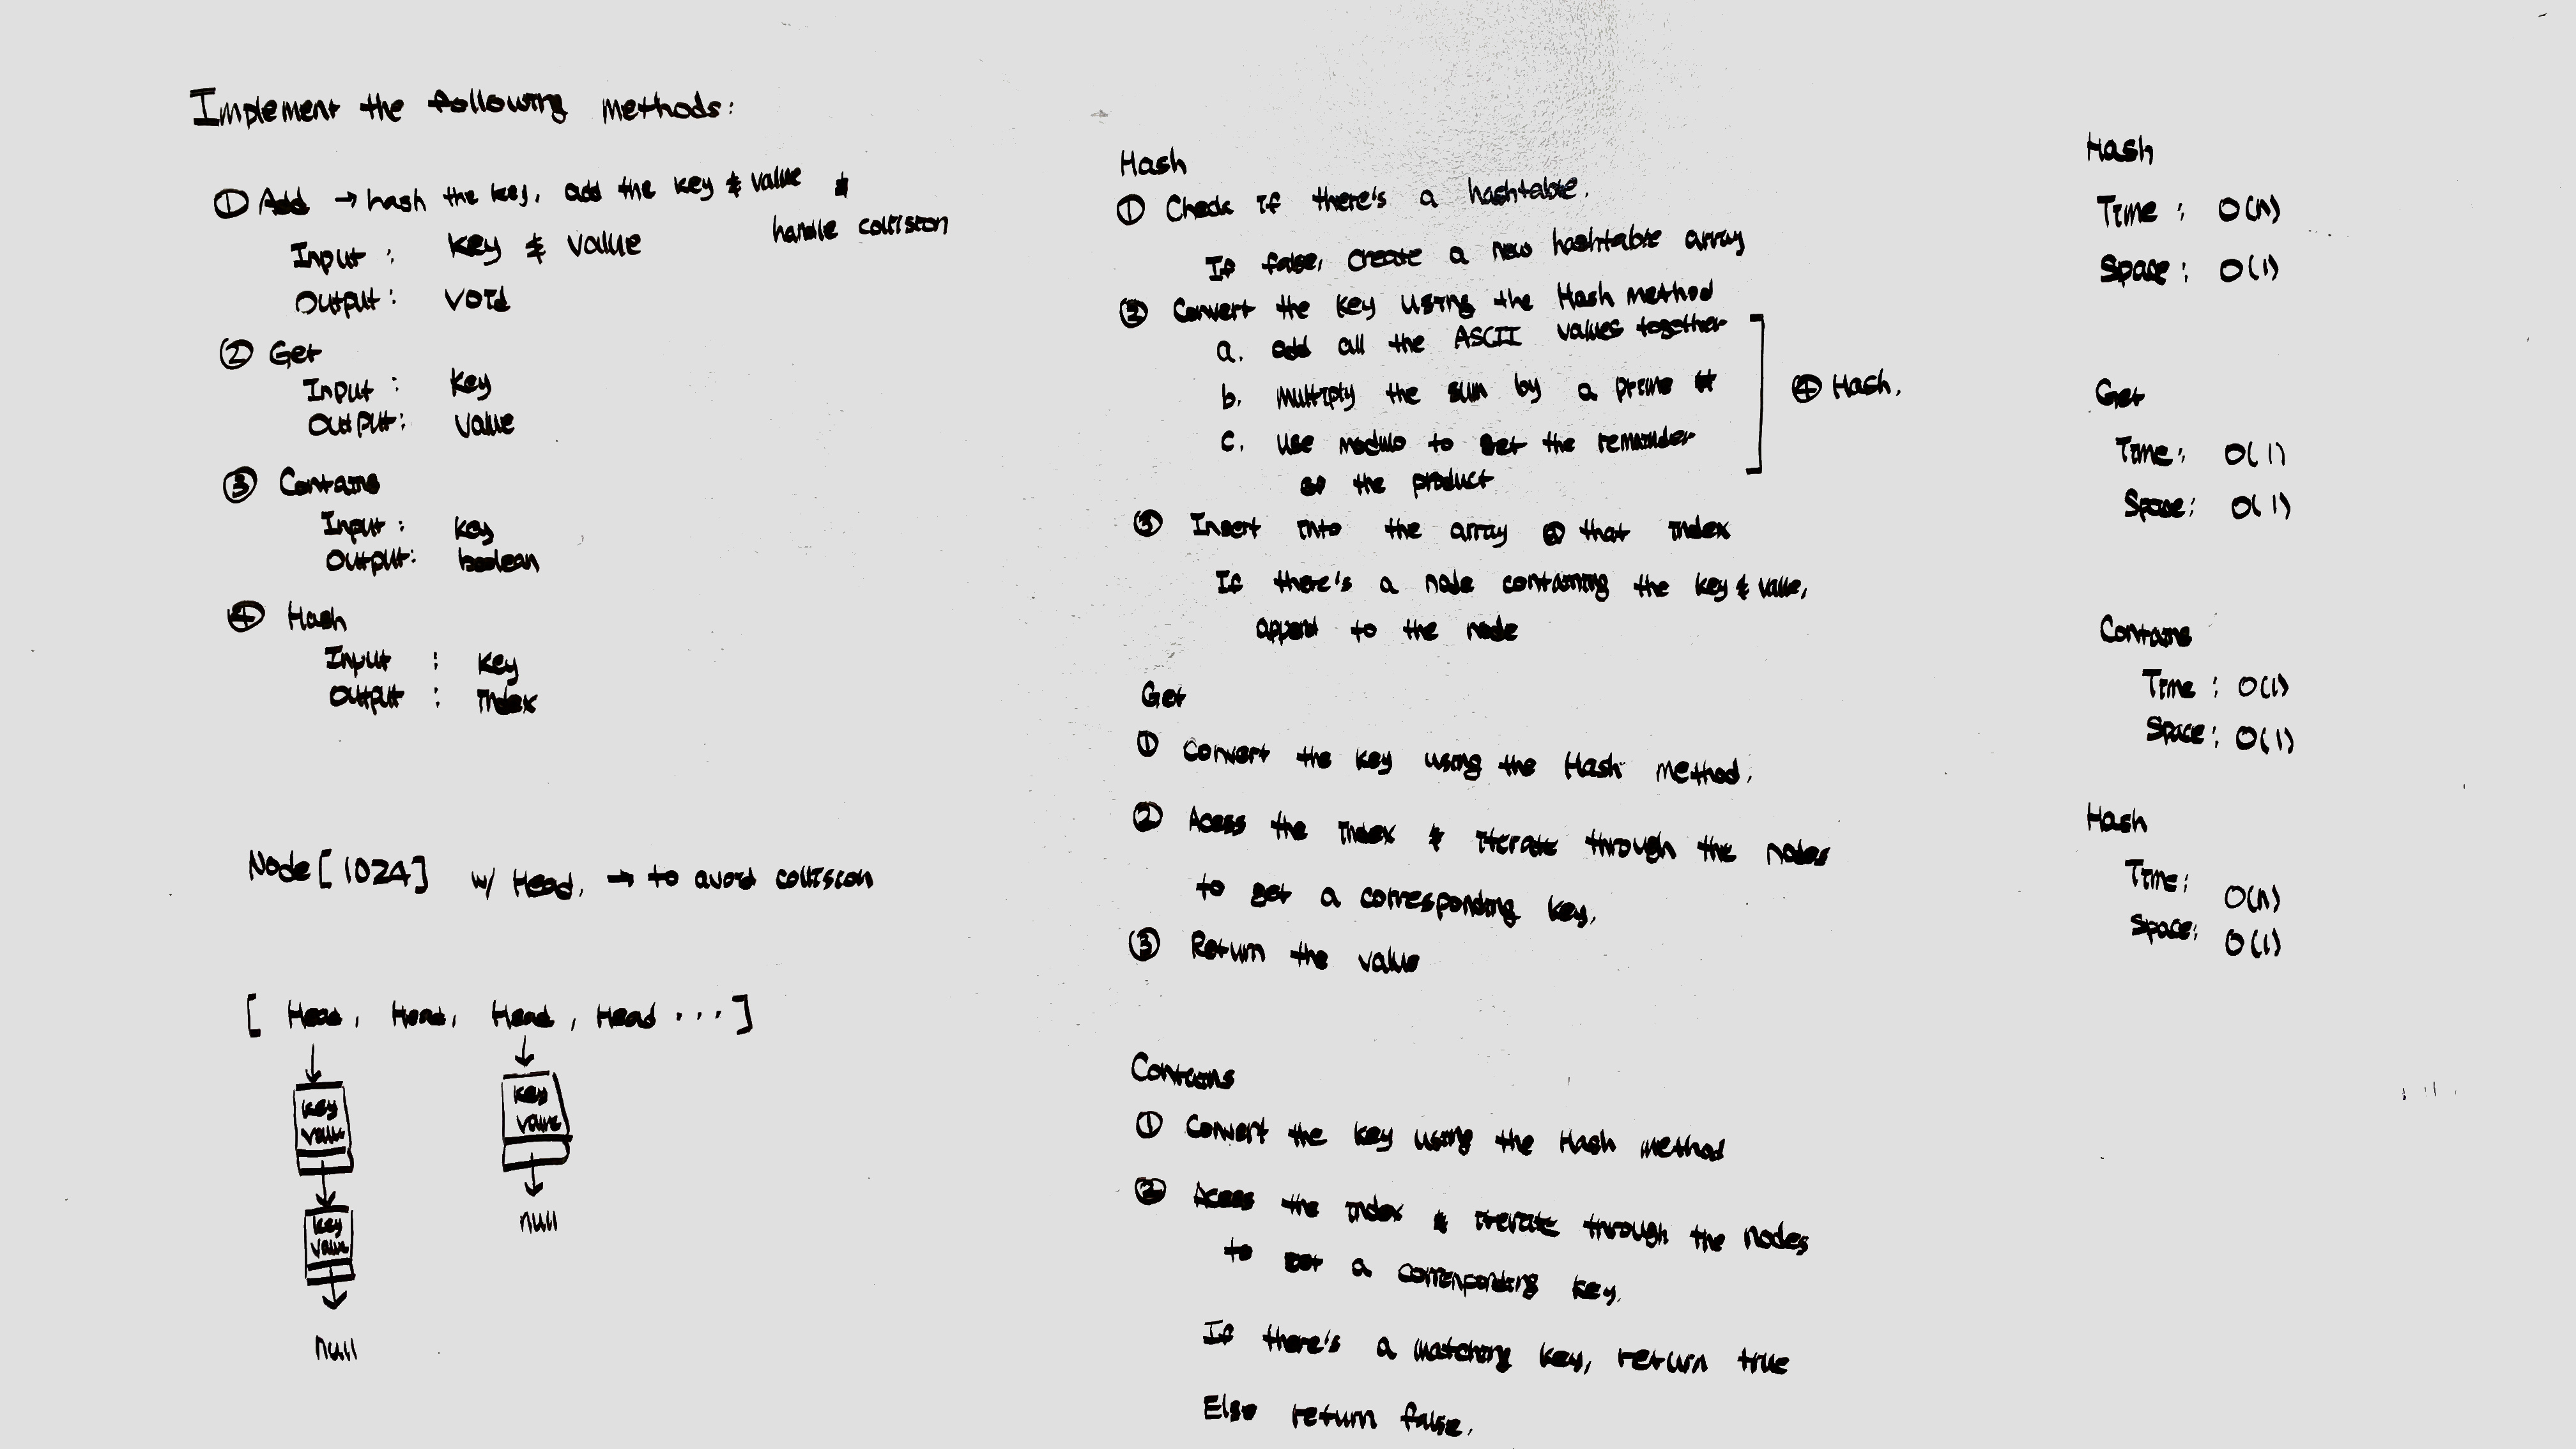 Implement the following methods:
① Add → hash the key, add the key & value &
handle collision
Input : key & value
Output : void
② Get
Input : key
Output : value
③ Contains
Input : key
Output : boolean
④ Hash
Input : key
Output : index
Node [1024] w/ Head, → to avoid collision
[ Head, Head, Head, Head ... ]
key
value
key
value
null
key
value
null
Hash
① Check if there's a hashtable.
If false, create a new hashtable array
② Convert the key using the Hash method
a. add all the ASCII values together
b. multiply the sum by a prime #
c. use modulo to get the remainder
of the product
④ Hash.
③ Insert into the array @ that index
If there's a node containing the key & value,
append to the node
Get
① Convert the key using the Hash method.
② Acess the index & iterate through the nodes
to get a corresponding key.
③ Return the value
Contains
① Convert the key using the Hash method
② Access the index & iterate through the nodes
to get a corresponding key.
If there's a matching key, return true
Else return false.
Hash
Time : O(n)
Space : O(1)
Get
Time : O(1)
Space : O(1)
Contains
Time : O(1)
Space : O(1)
Hash
Time : O(n)
Space : O(1)